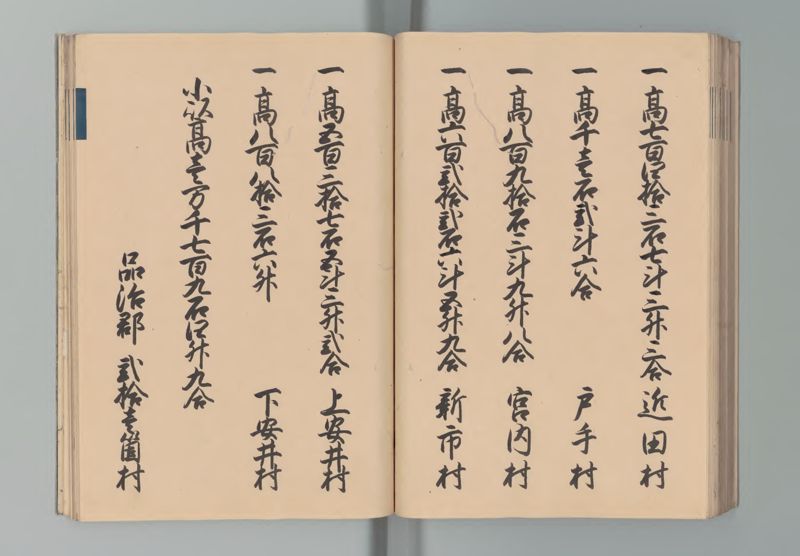 一 高七百四拾三石七斗三升三合 近田村
一 高千壱石弐斗六合 戸手村
一 高八百九拾石三斗九升八合 宮内村
一 高六百弐拾弐石六斗五升九合 新市村
一 高五百三拾七石五斗三升弐合 上安井村
一 高八百八拾三石六升 下安井村
小以高壱万千七百九石四升九合
品治郡 弐拾壱箇村